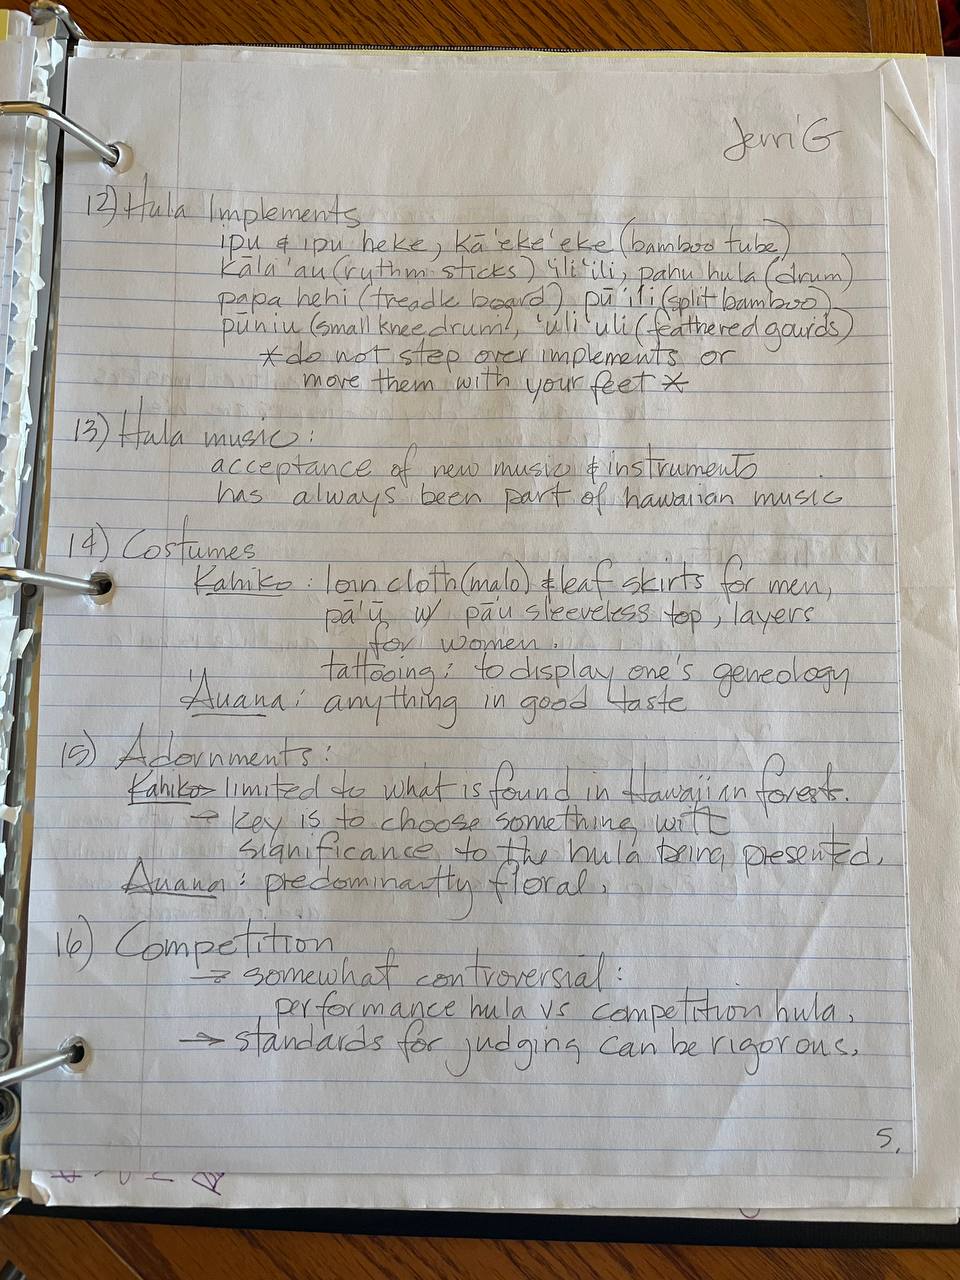 Jerri G
12) Hula Implements
ipu & ipu heke, kā 'eke 'eke (bamboo tube)
kāla 'au (rythm sticks) 'ili 'ili, pahu hula (drum)
papa hehi (treadle board), pū 'ili (split bamboo)
pūniu (small knee drum), 'uli 'uli (feathered gourds)
*do not step over implements or
move them with your feet *
13) Hula music:
acceptance of new music & instruments
has always been part of hawaiian music
14) Costumes
Kahiko: loin cloth (malo) & leaf skirts for men,
pā'ū w/ pā'u sleeveless top, layers
for women.
tattooing: to display one's geneology
'Auana: anything in good taste
15) Adornments:
Kahiko → limited to what is found in Hawaiian forests.
→ key is to choose something with
significance to the hula being presented.
Auana: predominantly floral.
16) Competition
→ somewhat controversial:
performance hula vs competition hula.
→ standards for judging can be rigorous.
5.